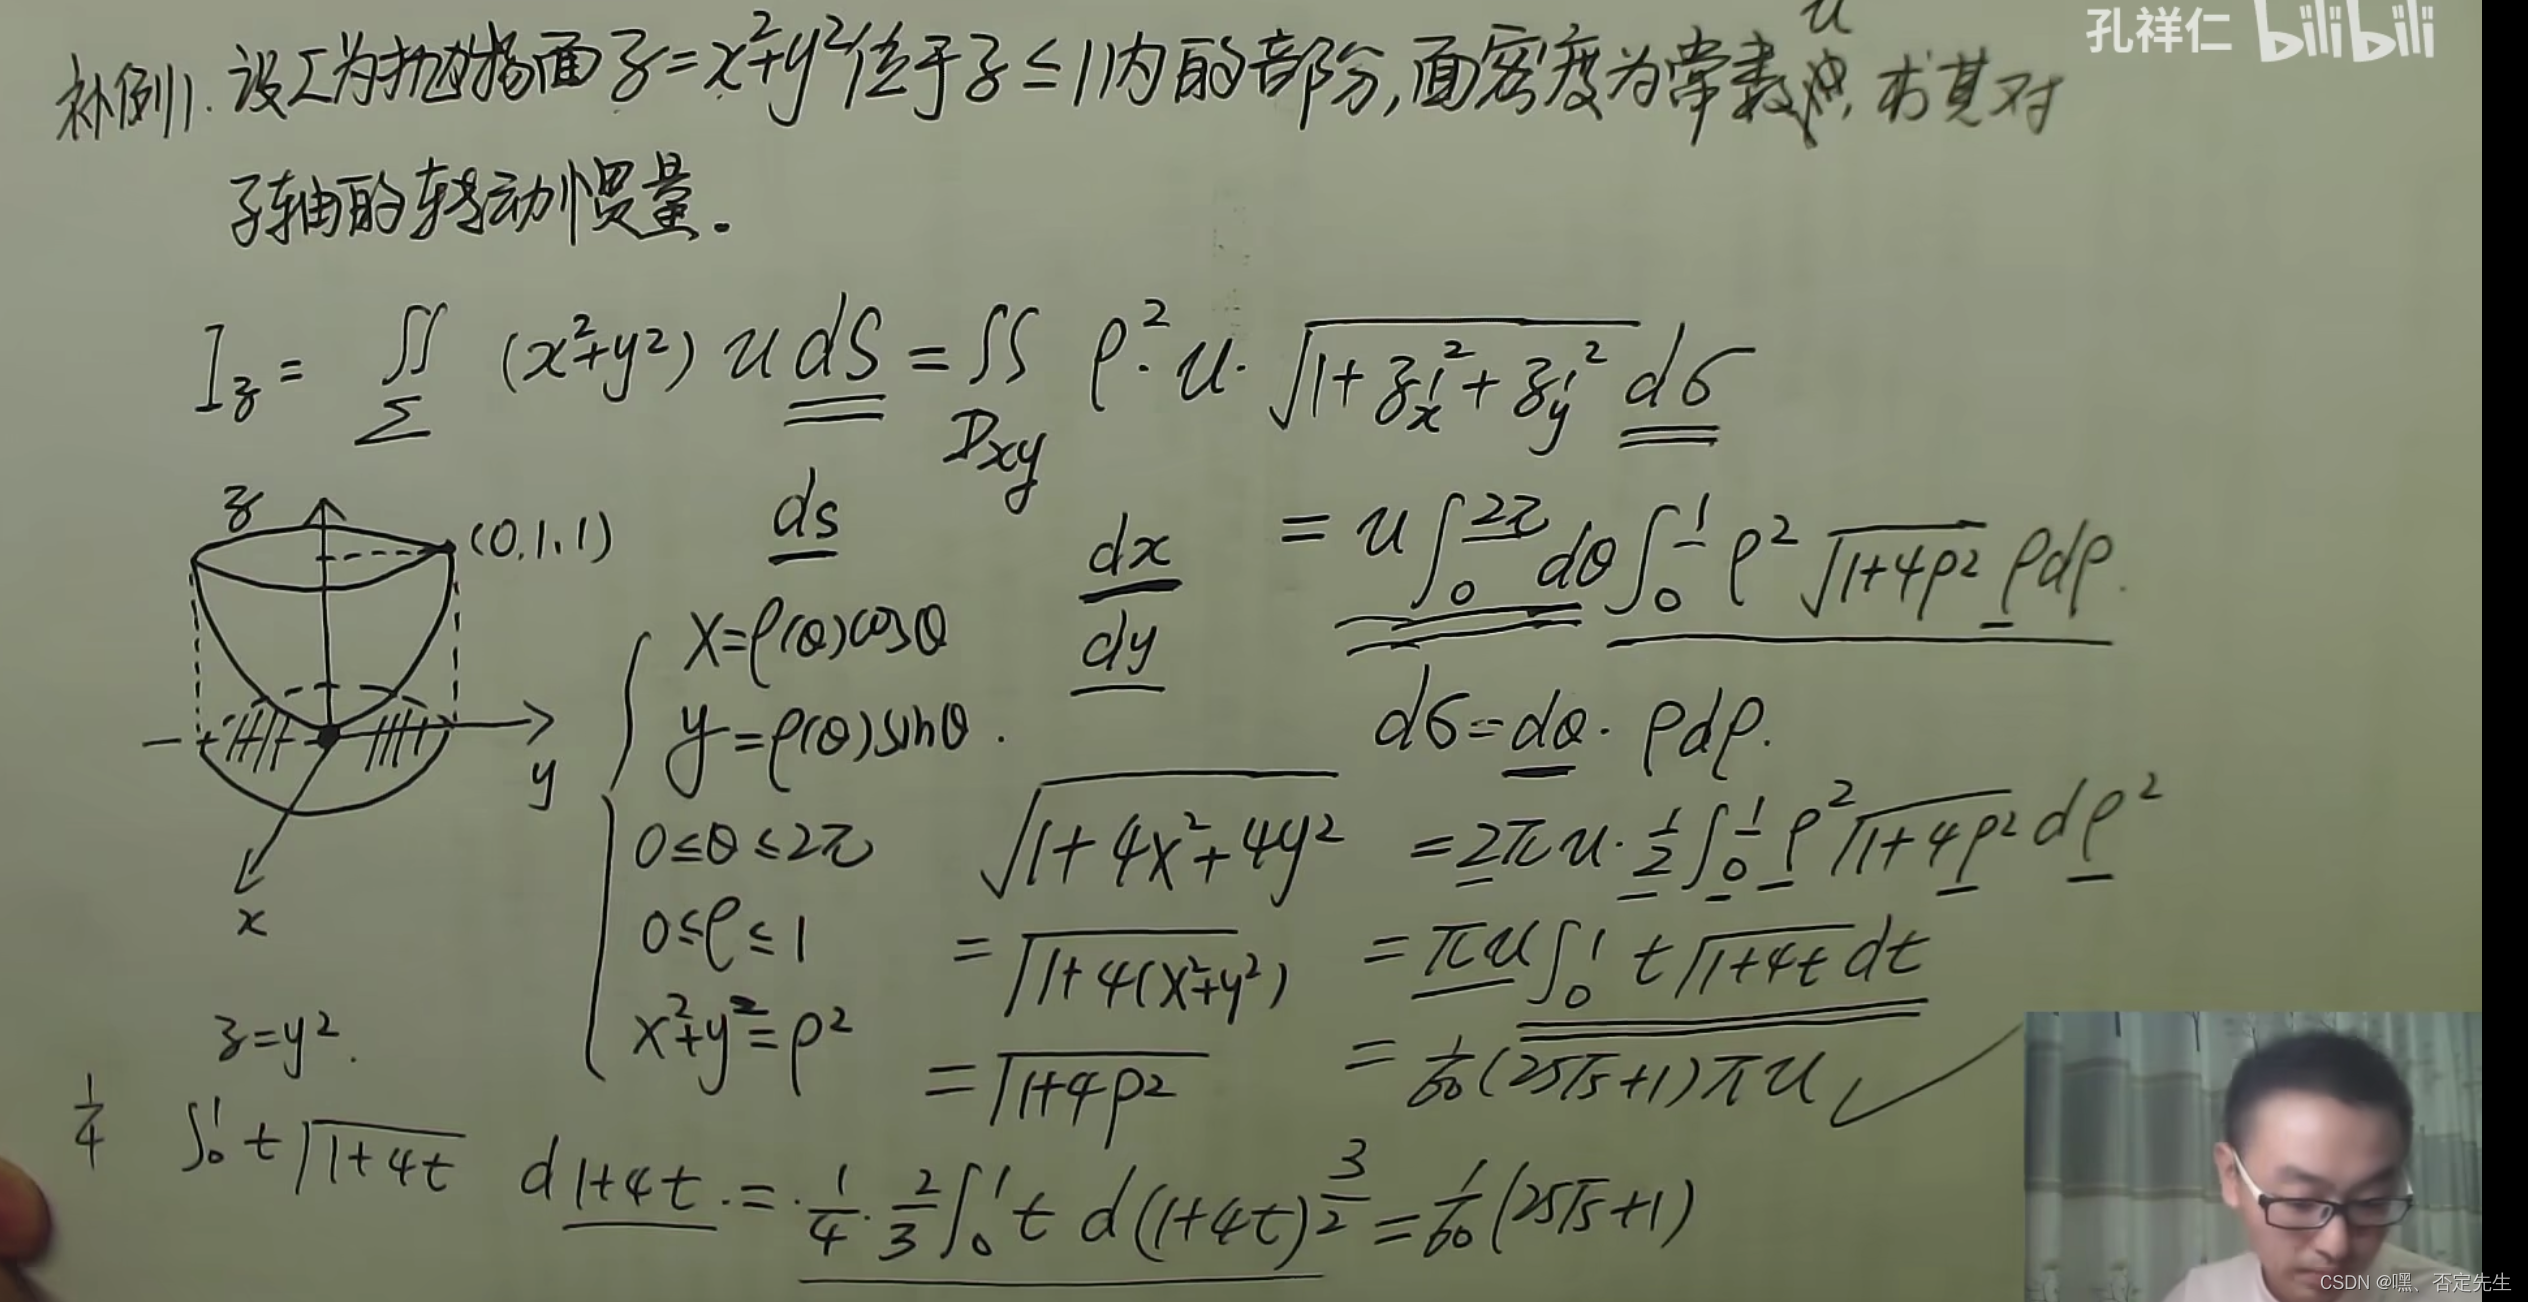 孔祥仁 bilibili
补例1. 设Σ为抛物面 z=x²+y² 位于 z≤1 内的部分, 面密度为常数 u, 求其对
z轴的转动惯量.
I_z = ∬_Σ (x²+y²) u dS = ∬_{Dxy} ρ²·u·√(1+z'_x²+z'_y²) dσ
= u∫₀^{2π} dθ ∫₀¹ ρ² √(1+4ρ²) ρdρ.
z
(0,1,1)
y
x
ds
dx
dy
x=ρ(θ)cosθ
y=ρ(θ)sinθ.
0≤θ≤2π
0≤ρ≤1
x²+y²=ρ²
dσ=dθ·ρdρ.
√(1+4x²+4y²)
=√(1+4(x²+y²))
=√(1+4ρ²)
=2πu·½∫₀¹ρ²√(1+4ρ²)dρ²
=πu∫₀¹t√(1+4t)dt
=1/60(25√5+1)πu
z=y².
1/4 ∫₀¹t√(1+4t) d 1+4t .=·1/4·2/3∫₀¹t d(1+4t)^{3/2}=1/60(25√5+1)
CSDN @嘿、否定先生